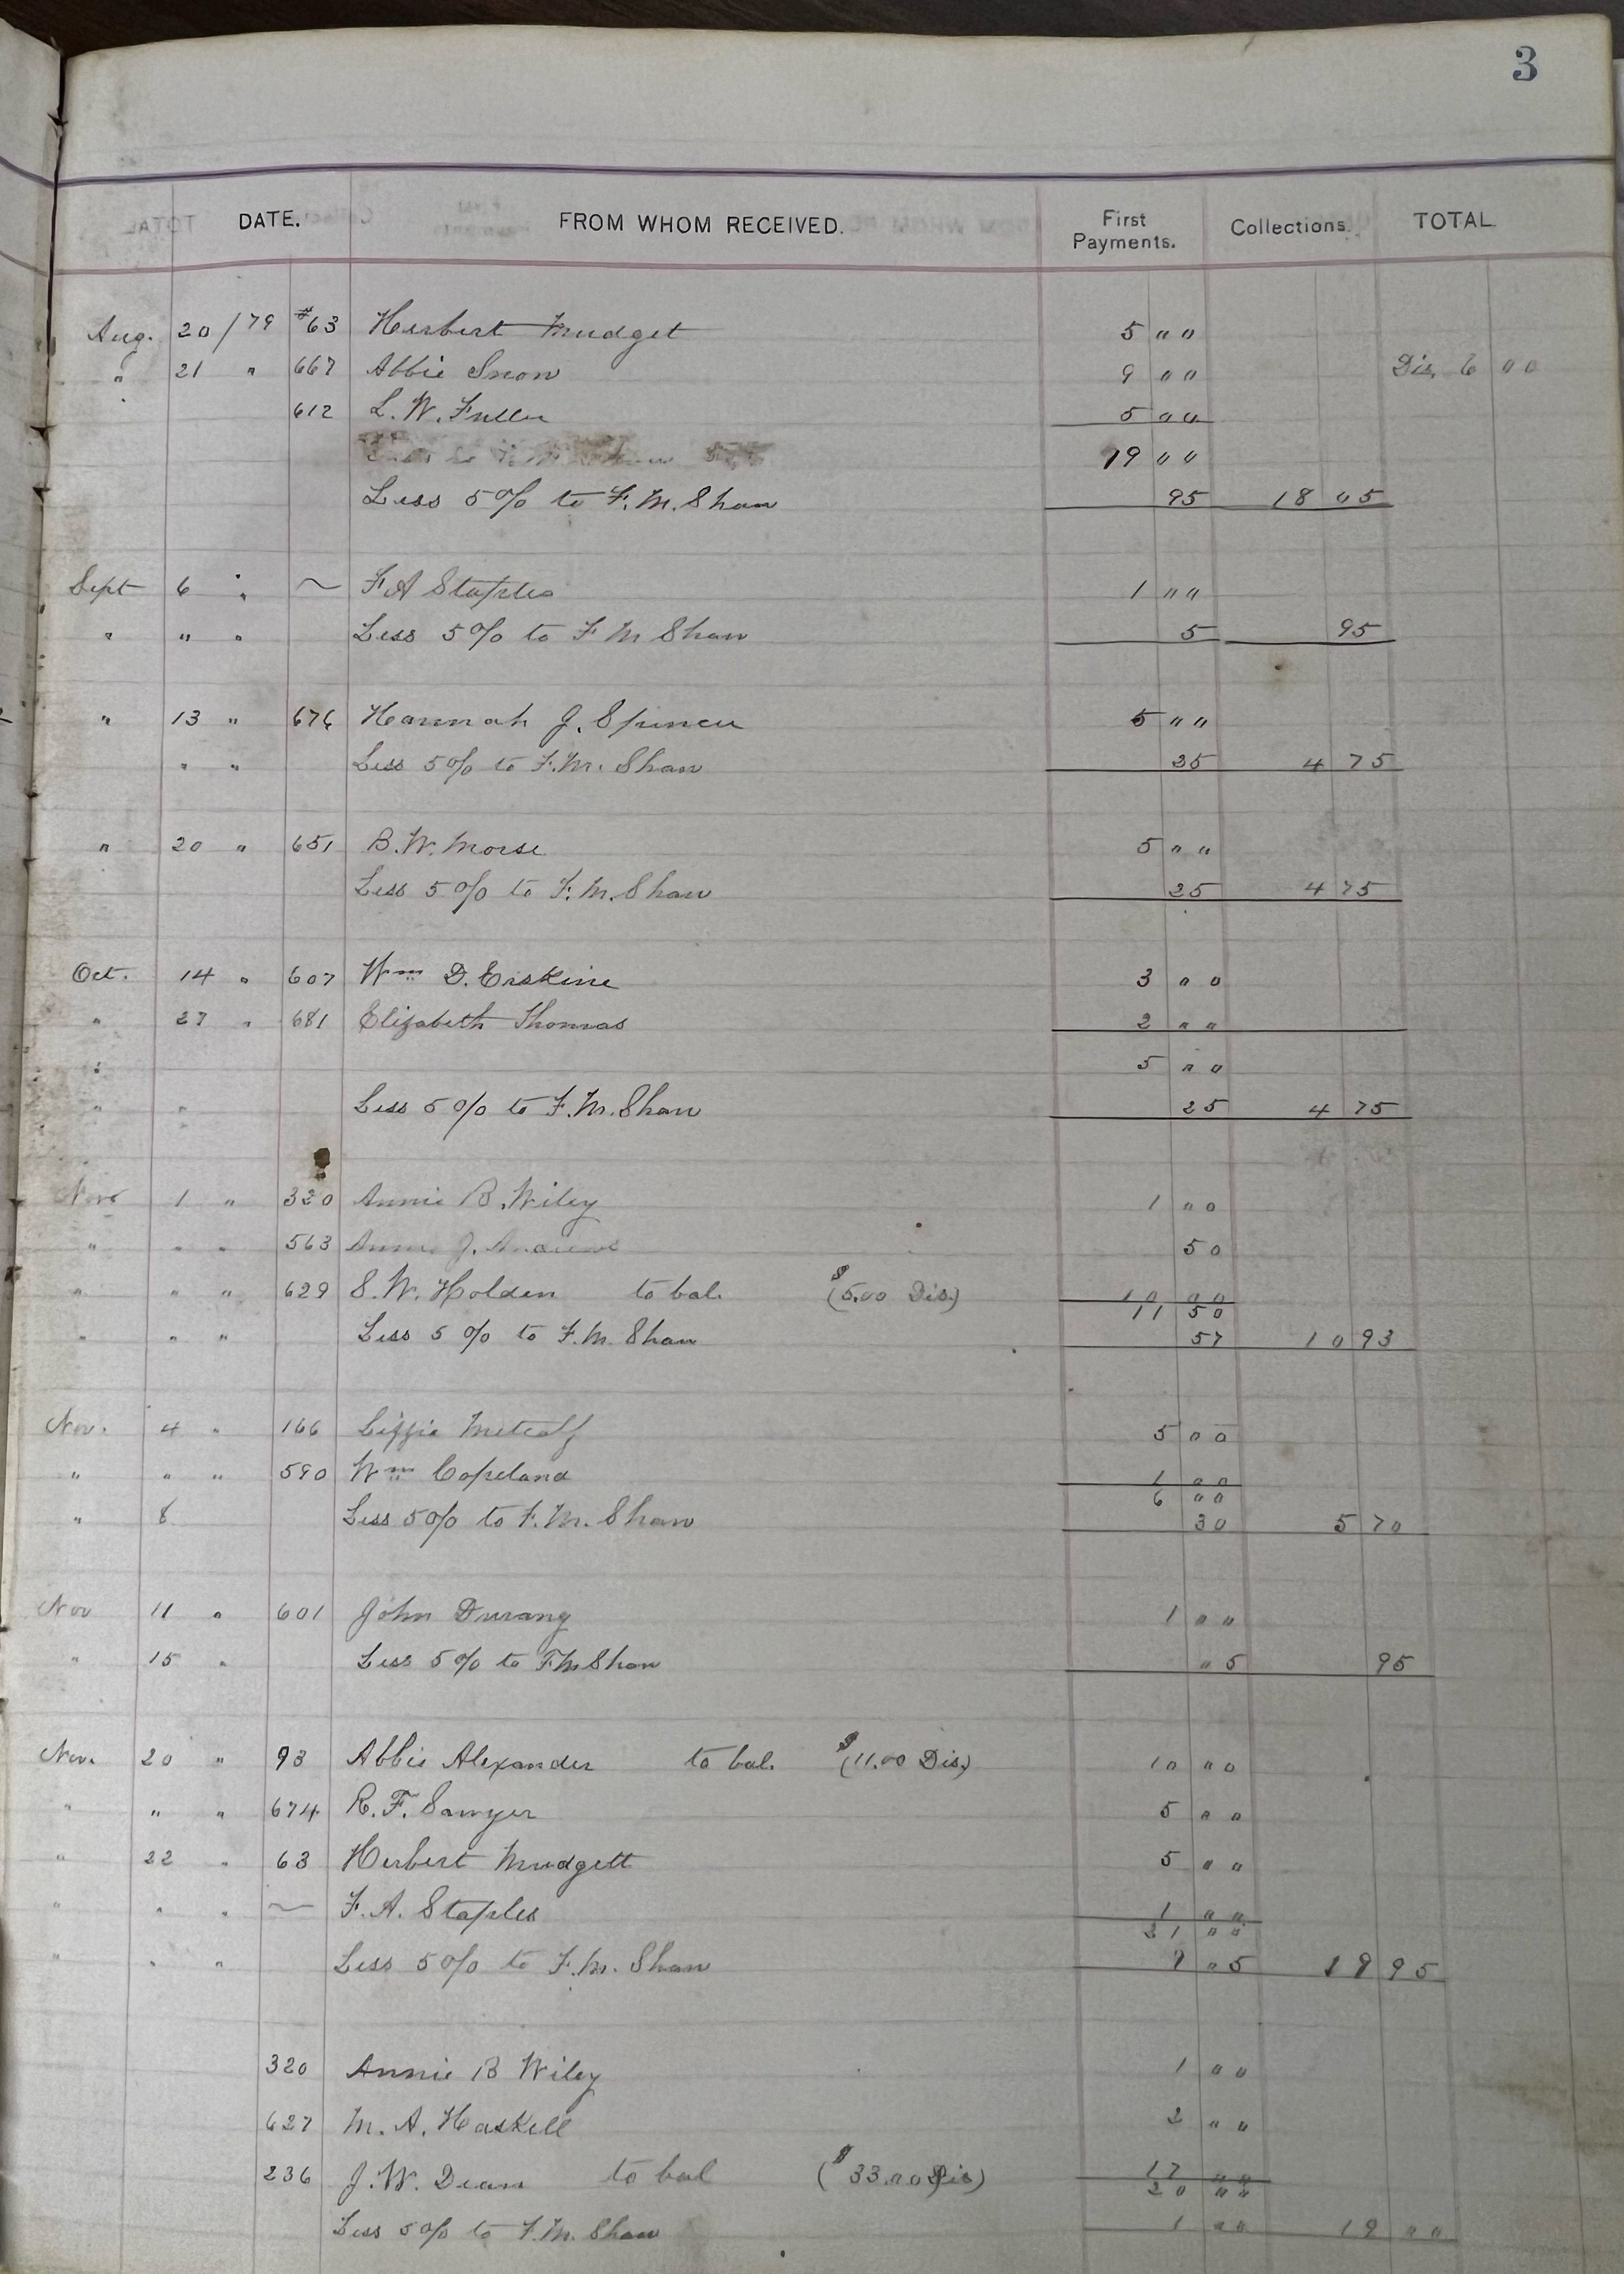 3
DATE. FROM WHOM RECEIVED. First Payments. Collections. TOTAL.
Aug. 20/79 #63 Herbert Mudget 5 00
" 21 " 667 Abbie Snow 9 00 Dis. 6 00
612 L. W. Fuller 5 00
19 00
Less 5% to F. M. Shaw 95 18 05
Sept 6 " ~ F A Staples 1 00
" " " Less 5% to F M Shaw 5 95
" 13 " 676 Hannah J. Spencer 5 00
" " Less 5% to F. M. Shaw 25 4 75
" 20 " 651 B. W. Morse 5 00
Less 5% to F. M. Shaw 25 4 75
Oct. 14 " 607 Wm D. Erskine 3 00
" 27 " 681 Elizabeth Thomas 2 00
" 5 00
" " Less 5% to F. M. Shaw 25 4 75
Nov 1 " 320 Annie B. Wiley 1 00
" " " 563 Annie J. Andrews 50
" " " 629 S. W. Holden to bal. ($5.00 Dis.) 10 00
11 50
" " " Less 5% to F. M. Shaw 57 10 93
Nov. 4 " 166 Lizzie Metcalf 5 00
" " " 590 Wm Copeland 1 00
6 00
" 8 Less 5% to F. M. Shaw 30 5 70
Nov 11 " 601 John Durang 1 00
" 15 " Less 5% to F M Shaw " 5 95
Nov. 20 " 93 Abbie Alexander to bal. ($11.00 Dis.) 10 00
" " " 674 R. F. Sawyer 5 00
" 22 " 63 Herbert Mudgett 5 00
" " " ~ F. A. Staples 1 00
21 00
" " " Less 5% to F. M. Shaw 1 05 19 95
320 Annie B Wiley 1 00
627 M. A. Haskell 2 00
236 J. W. Dean to bal ($33.00 Dis) 17 00
20 00
Less 5% to F. M. Shaw 1 00 19 00